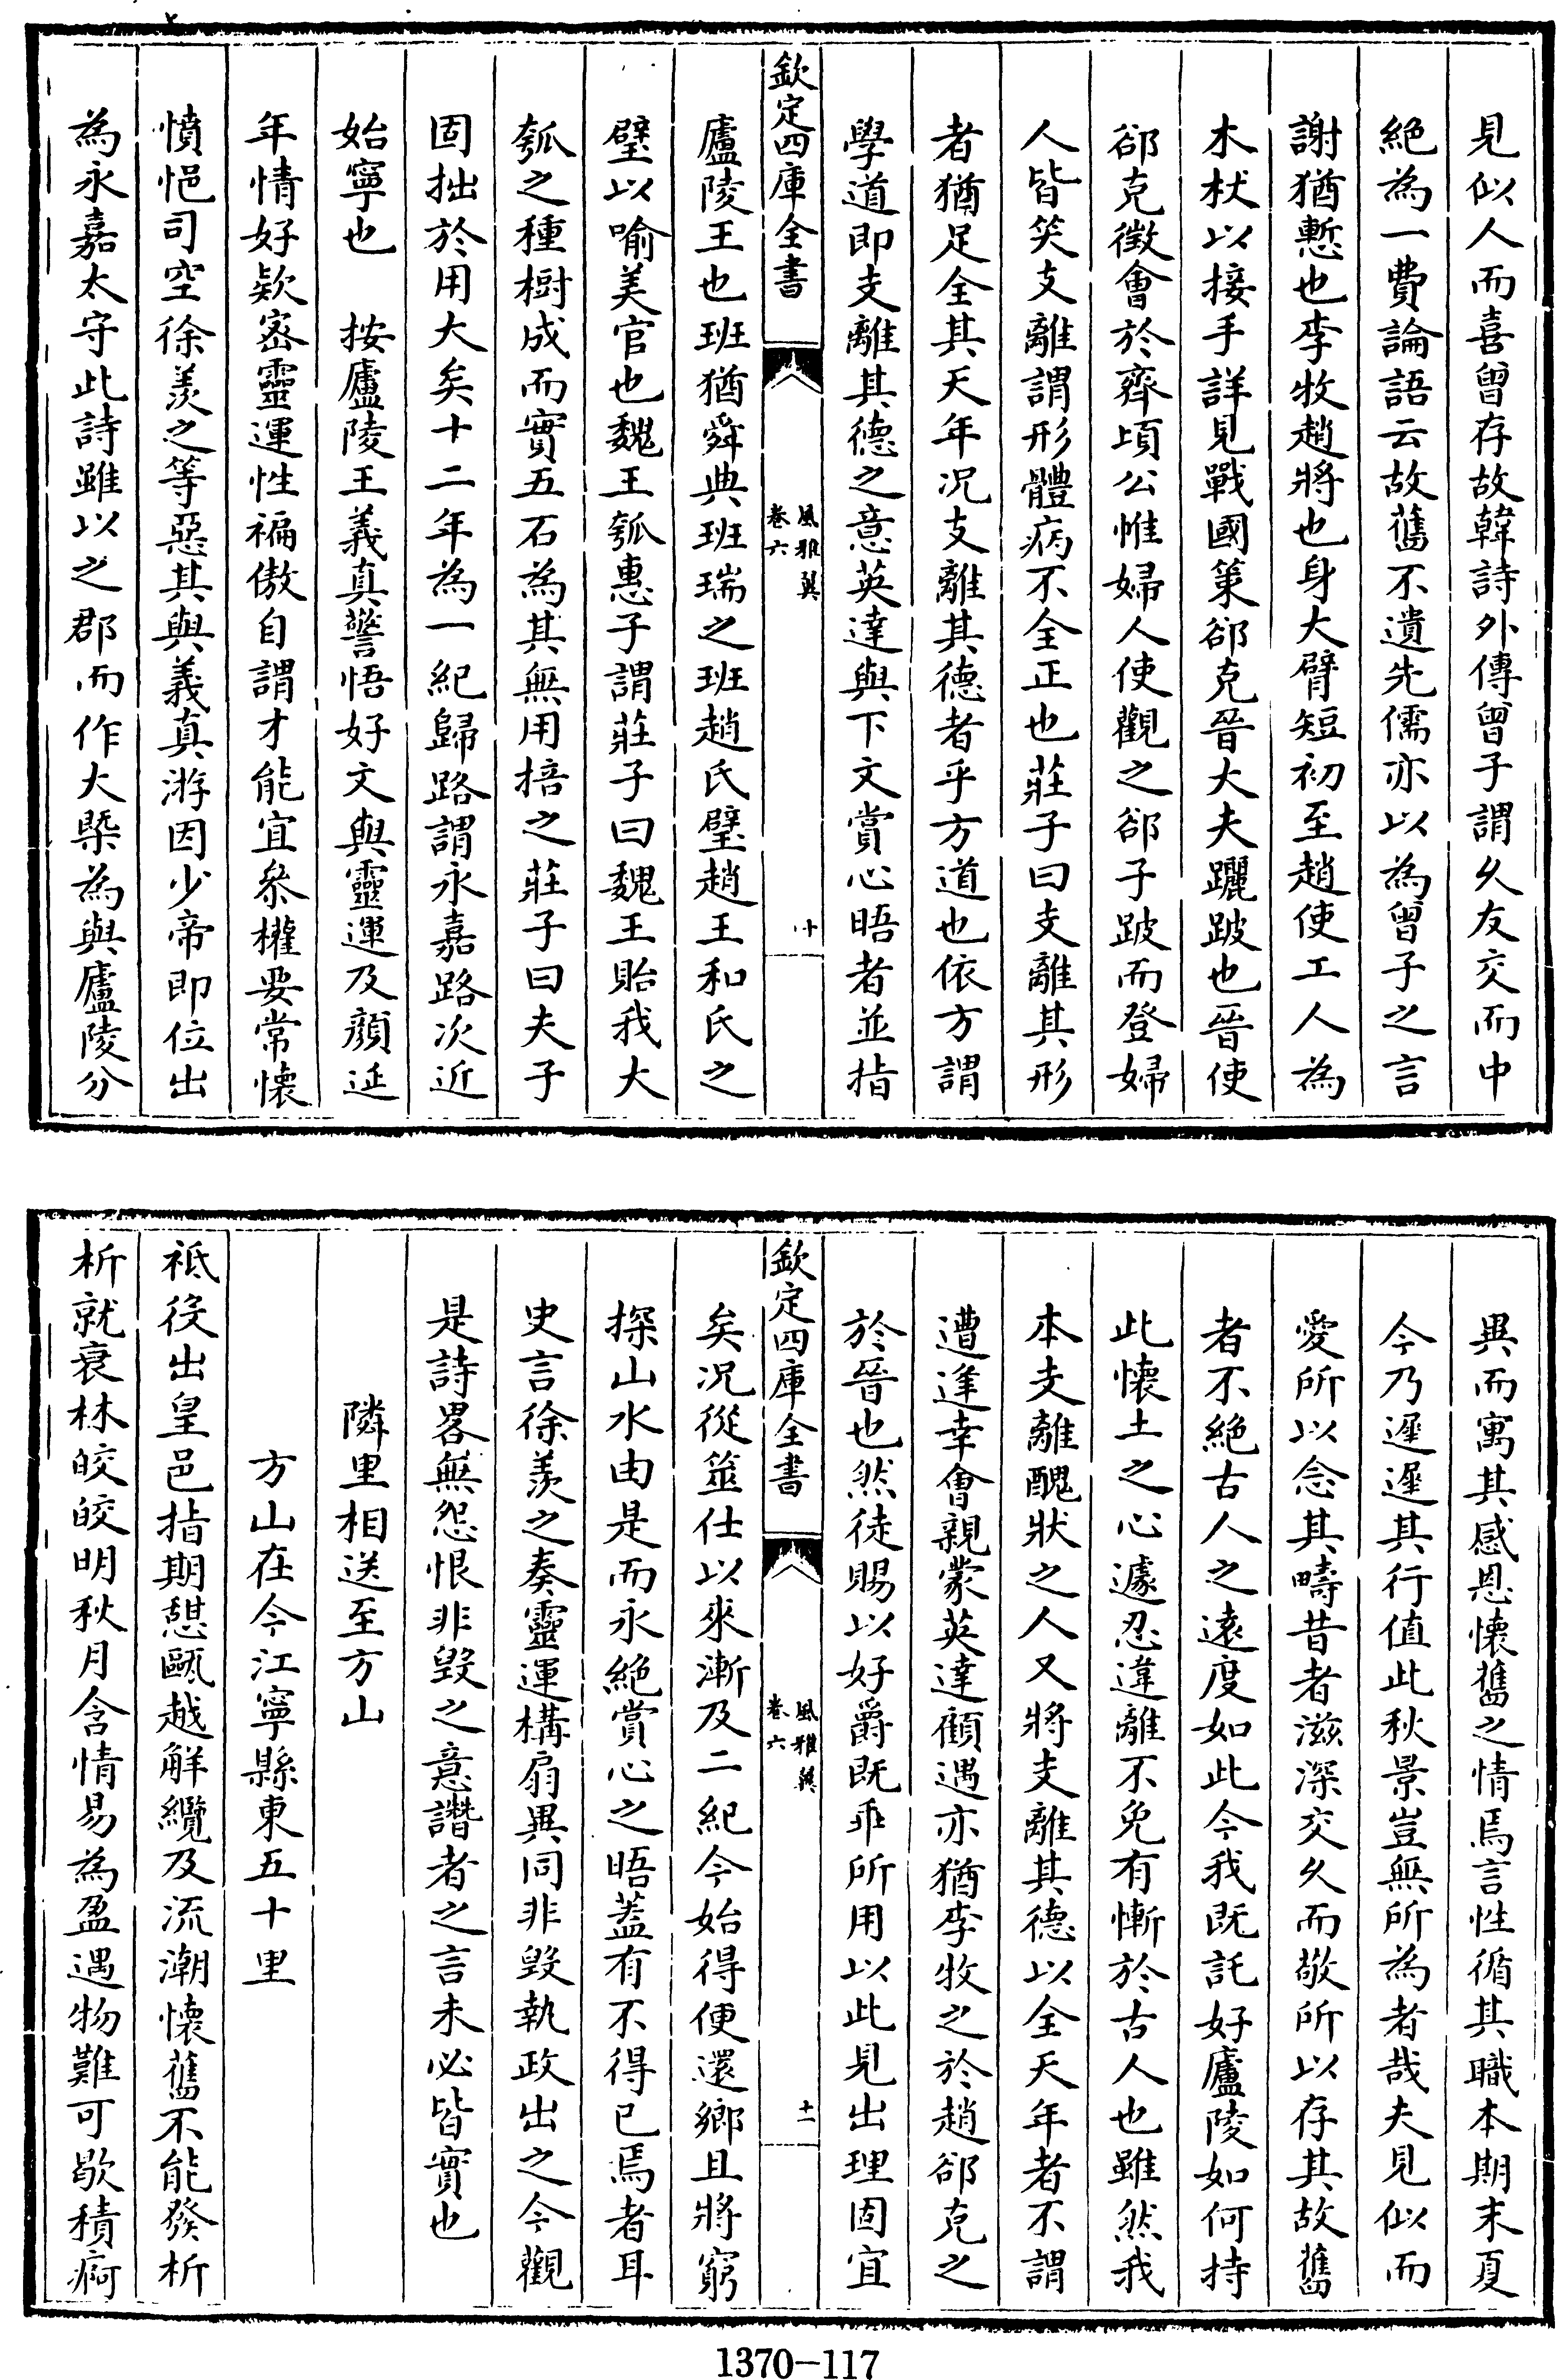 見似人而喜曾存故韓詩外傳曾子謂乆友交而中
絶為一費論語云故舊不遺先儒亦以為曾子之言
謝猶慙也李牧趙將也身大臂短初至趙使工人為
木杖以接手詳見戰國策郤克晉大夫躧跛也晉使
郤克徴會於齊頃公帷婦人使觀之郤子跛而登婦
人皆笑支離謂形體病不全正也莊子曰支離其形
者猶足全其天年况支離其德者乎方道也依方謂
學道即支離其德之意英達與下文賞心晤者並指
欽定四庫全書
風雅翼
卷六
十
廬陵王也班猶舜典班瑞之班趙氏璧趙王和氏之
璧以喻美官也魏王瓠惠子謂莊子曰魏王貽我大
瓠之種樹成而實五石為其無用掊之莊子曰夫子
固拙於用大矣十二年為一紀歸路謂永嘉路次近
始寧也　按廬陵王義真警悟好文與靈運及顔延
年情好欵宻靈運性褊傲自謂才能宜叅權要常懐
憤悒司空徐羨之等惡其與義真游因少帝即位出
為永嘉太守此詩雖以之郡而作大槩為與廬陵分
異而寓其感恩懐舊之情焉言性循其職本期末夏
今乃遲遲其行值此秋景豈無所為者哉夫見似而
愛所以念其疇昔者滋深交乆而敬所以存其故舊
者不絶古人之逺度如此今我既託好廬陵如何持
此懐土之心遽忍違離不免有慚於古人也雖然我
本支離醜狀之人又將支離其德以全天年者不謂
遭逢幸會親蒙英達顧遇亦猶李牧之於趙郤克之
於晉也然徒賜以好爵既乖所用以此見出理固宜
欽定四庫全書
風雅翼
卷六
十一
矣况從筮仕以來漸及二紀今始得便還鄉且將窮
探山水由是而永絶賞心之晤蓋有不得已焉者耳
史言徐羨之奏靈運構扇異同非毀執政出之今觀
是詩畧無怨恨非毀之意譖者之言未必皆實也
隣里相送至方山
方山在今江寧縣東五十里
祗役出皇邑指期憩甌越解纜及流潮懐舊不能發析
析就衰林皎皎明秋月含情易為盈遇物難可歇積痾
1370-117